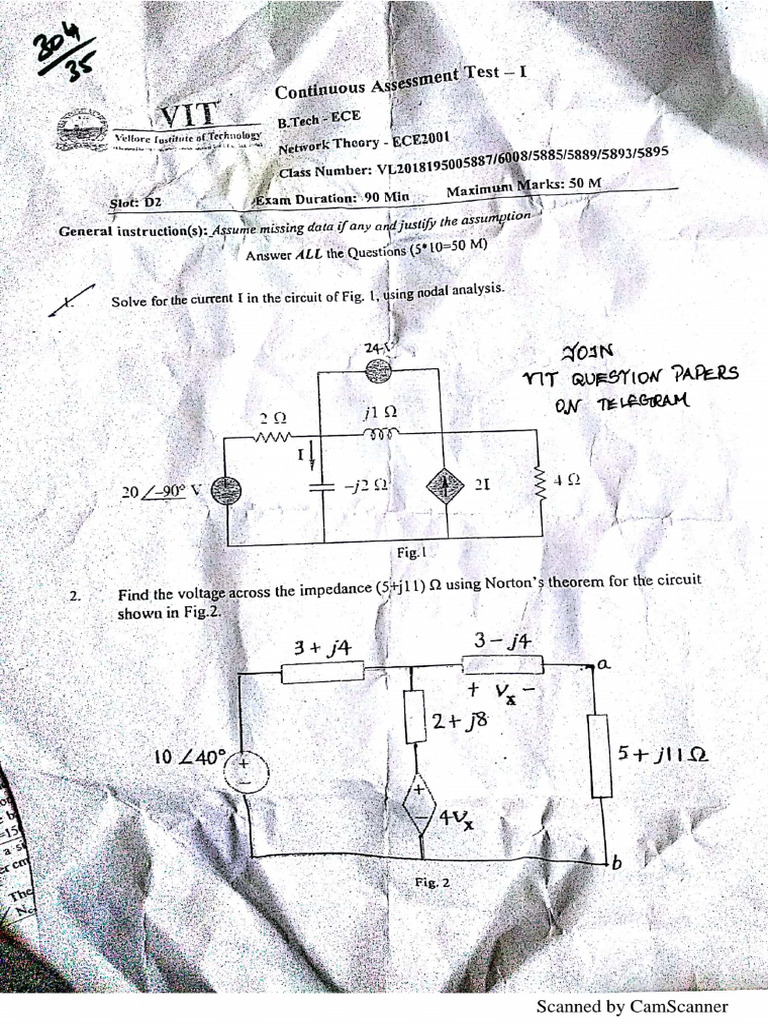 304/35
Continuous Assessment Test – I
VIT
Vellore Institute of Technology
B.Tech - ECE
Network Theory - ECE2001
Class Number: VL2018195005887/6008/5885/5889/5893/5895
Slot: D2 Exam Duration: 90 Min Maximum Marks: 50 M
General instruction(s): Assume missing data if any and justify the assumption
Answer ALL the Questions (5*10=50 M)
1. Solve for the current I in the circuit of Fig. 1, using nodal analysis.
JOIN
VIT QUESTION PAPERS
ON TELEGRAM
24 V
2 Ω
j1 Ω
I
20 ∠–90° V
–j2 Ω
2I
4 Ω
Fig.1
2. Find the voltage across the impedance (5+j11) Ω using Norton's theorem for the circuit
shown in Fig.2.
3 + j4
3 – j4
a
+ Vx –
2 + j8
10 ∠40°
+
–
5 + j11 Ω
+
–
4Vx
b
Fig. 2
=15
a s
er cm
The
Scanned by CamScanner